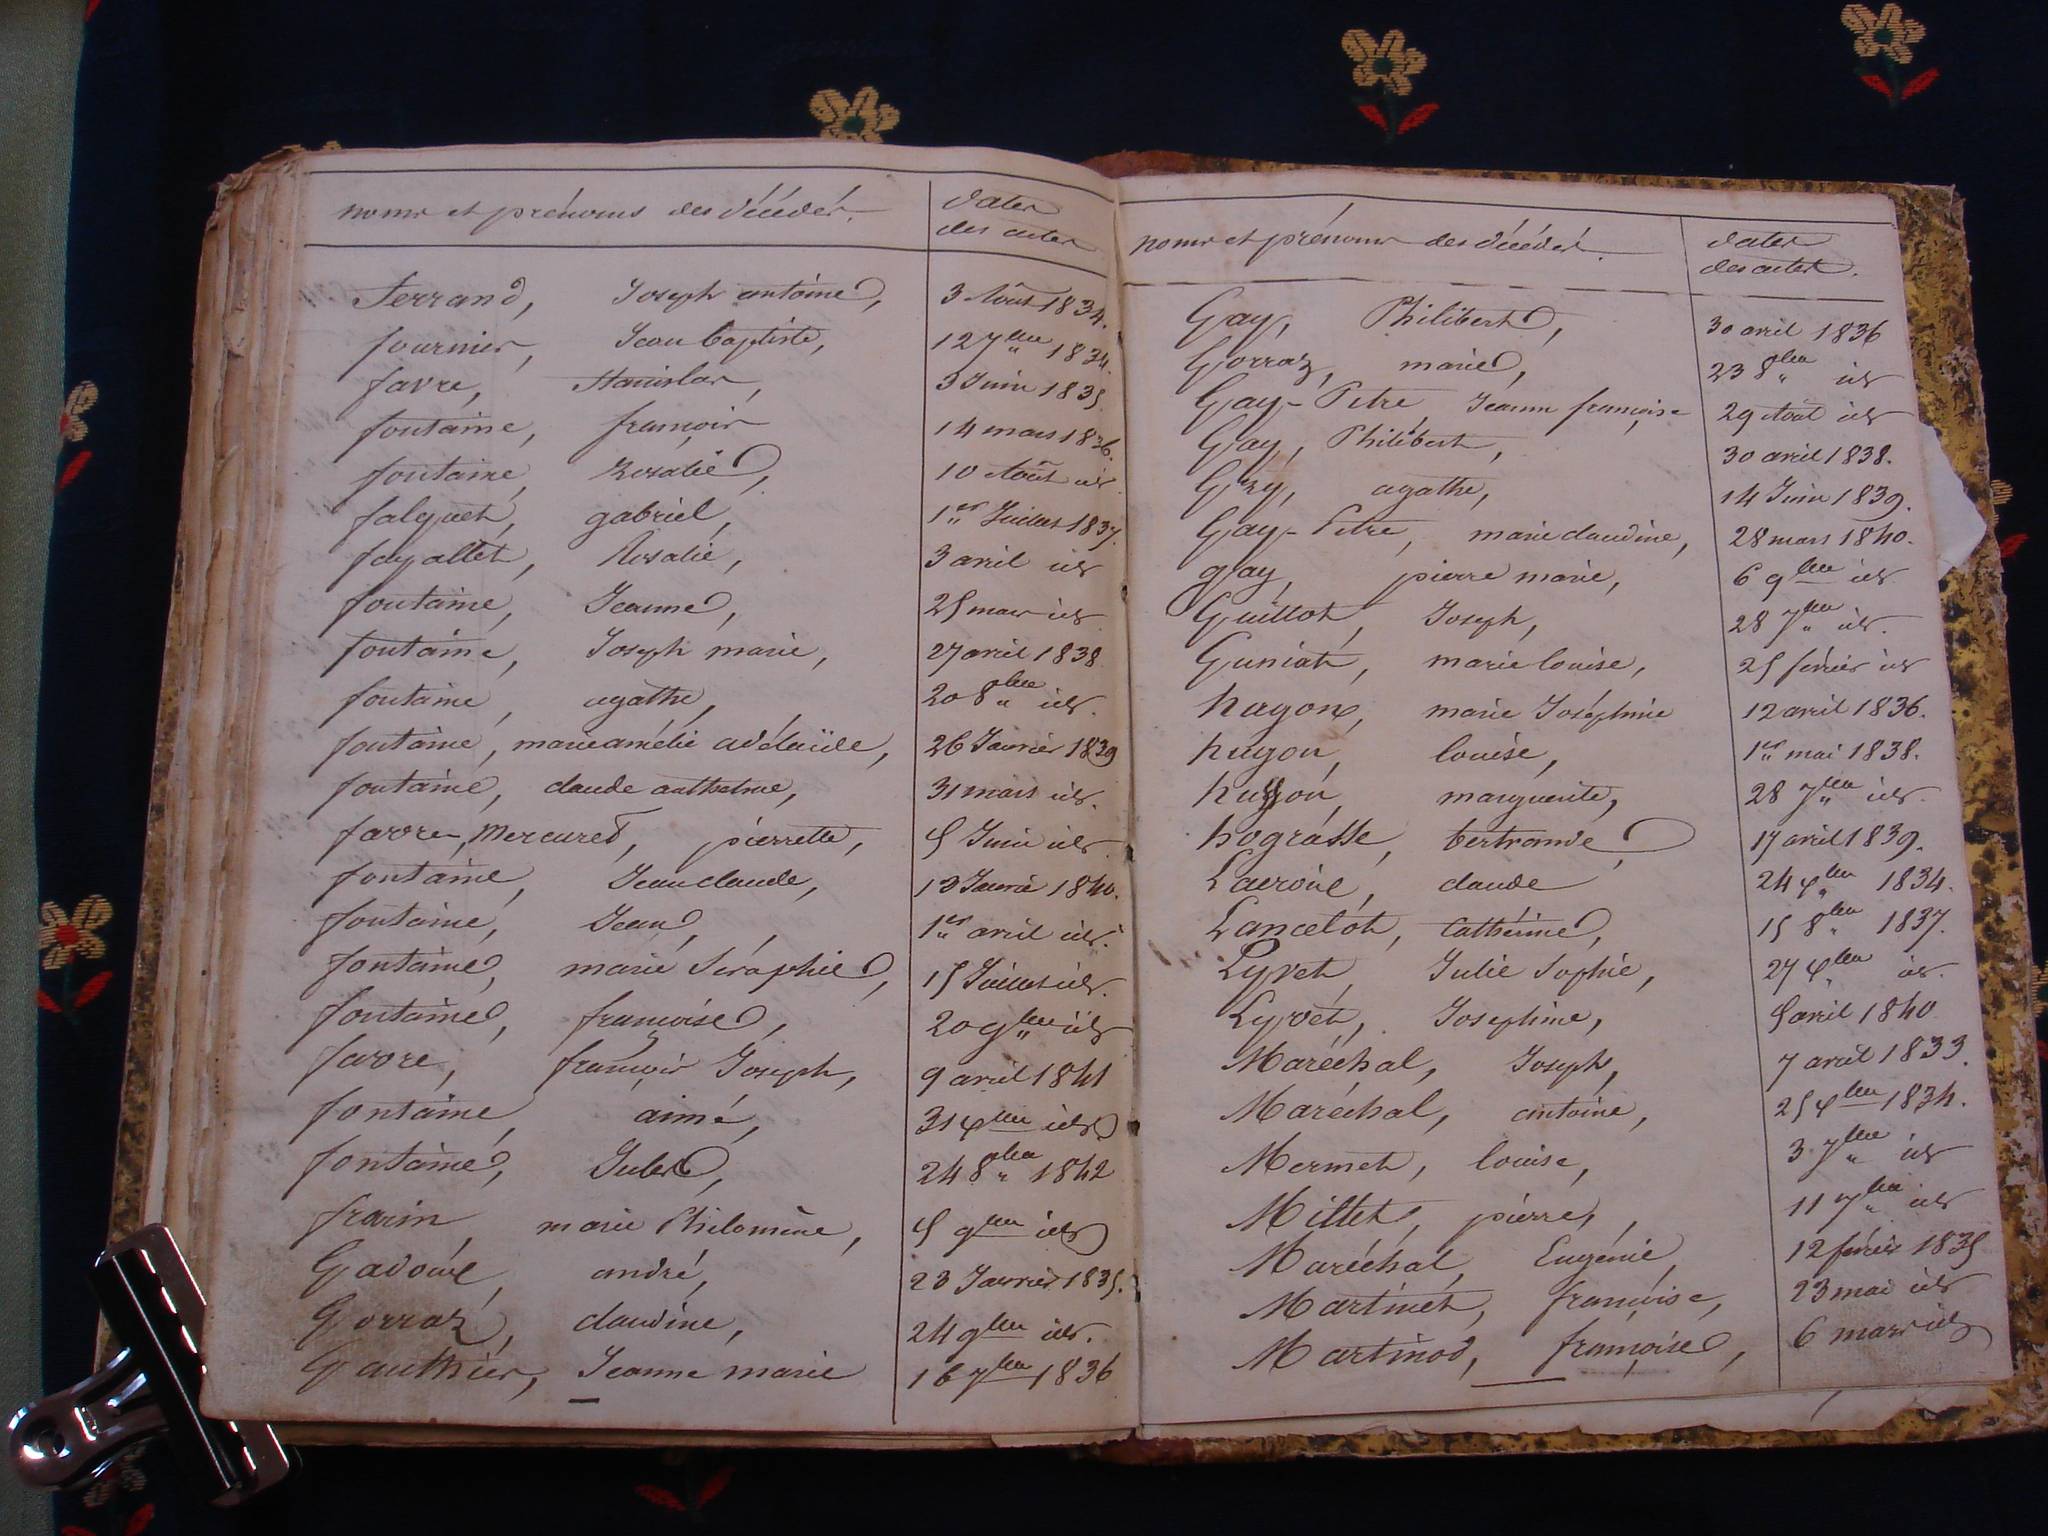 noms et prénoms des décédés.
dates
des actes
ferrand, Joseph antoine, 3 Août 1834.
fournier, Jean baptiste, 12 7bre 1834.
favre, Stanislas, 3 Juin 1835
fontaine, françois 14 mars 1836.
fontaine, Rosalie, 10 Août id.
falquet, gabriel, 1er Juillet 1837.
fayallet, Rosalie, 3 avril id
fontaine, Jeanne, 25 mars id
fontaine, Joseph marie, 27 avril 1838
fontaine, agathe, 20 8bre id.
fontaine, marie amélie adélaïde, 26 Janvier 1839
fontaine, claude anthelme, 31 mars id.
favre Mercured, pierrette, 5 Juin id.
fontaine, Jean claude, 13 Janvier 1840.
fontaine, Jean, 1er avril id.
fontaine, marie Séraphie, 15 Juillet id.
fontaine, françoise, 20 9bre id
favre, françois Joseph, 9 avril 1841
fontaine, aimé, 31 Xbre id
fontaine, Jules, 24 8bre 1842
frarin, marie Philomène, 5 9bre id
Gadoux, andré, 23 Janvier 1835.
Gorraz, claudine, 24 9bre id.
Gauthier, Jeanne marie 16 7bre 1836
noms et prénoms des décédés.
dates
des actes.
Gay, Philibert, 30 avril 1836
Gorraz, marie, 23 8bre id
Gay-Pitre Jeanne françoise 29 Août id
Gay, Philibert, 30 avril 1838.
Gzy, agathe, 14 Juin 1839.
Gay-Pitre, marie claudine, 28 mars 1840.
gay, pierre marie, 6 9bre id
Guillot, Joseph, 28 7bre id.
Guniat, marie louise, 25 février id
hugon, marie Joséphine 12 avril 1836.
hugon, louise, 1er mai 1838.
hugon, marguerite, 28 7bre id.
hograsse, bertrande, 17 avril 1839.
claude 24 Xbre 1834.
Lancelot, Cathérine, 15 8bre 1837.
Lyvet, Julie Sophie, 27 Xbre id.
Lyvet, Josephine, 5 avril 1840
Maréchal, Joseph, 7 avril 1833.
Maréchal, antoine, 25 Xbre 1834.
Mermet, louise, 3 7bre id
Millet, pierre, 11 7bre id
Maréchal, Eugénie, 12 février 1835
Martinet, françoise, 23 mai id
Martinod, françoise, 6 mars id